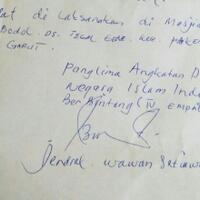 at di Laksanakan di Mesji
Bodd. Ds. Tegal
GARUT.
Panglima Angkatan D
Negara Islam Indo
Ber Bintang (IV empat
Jendral. wawan Setiawa